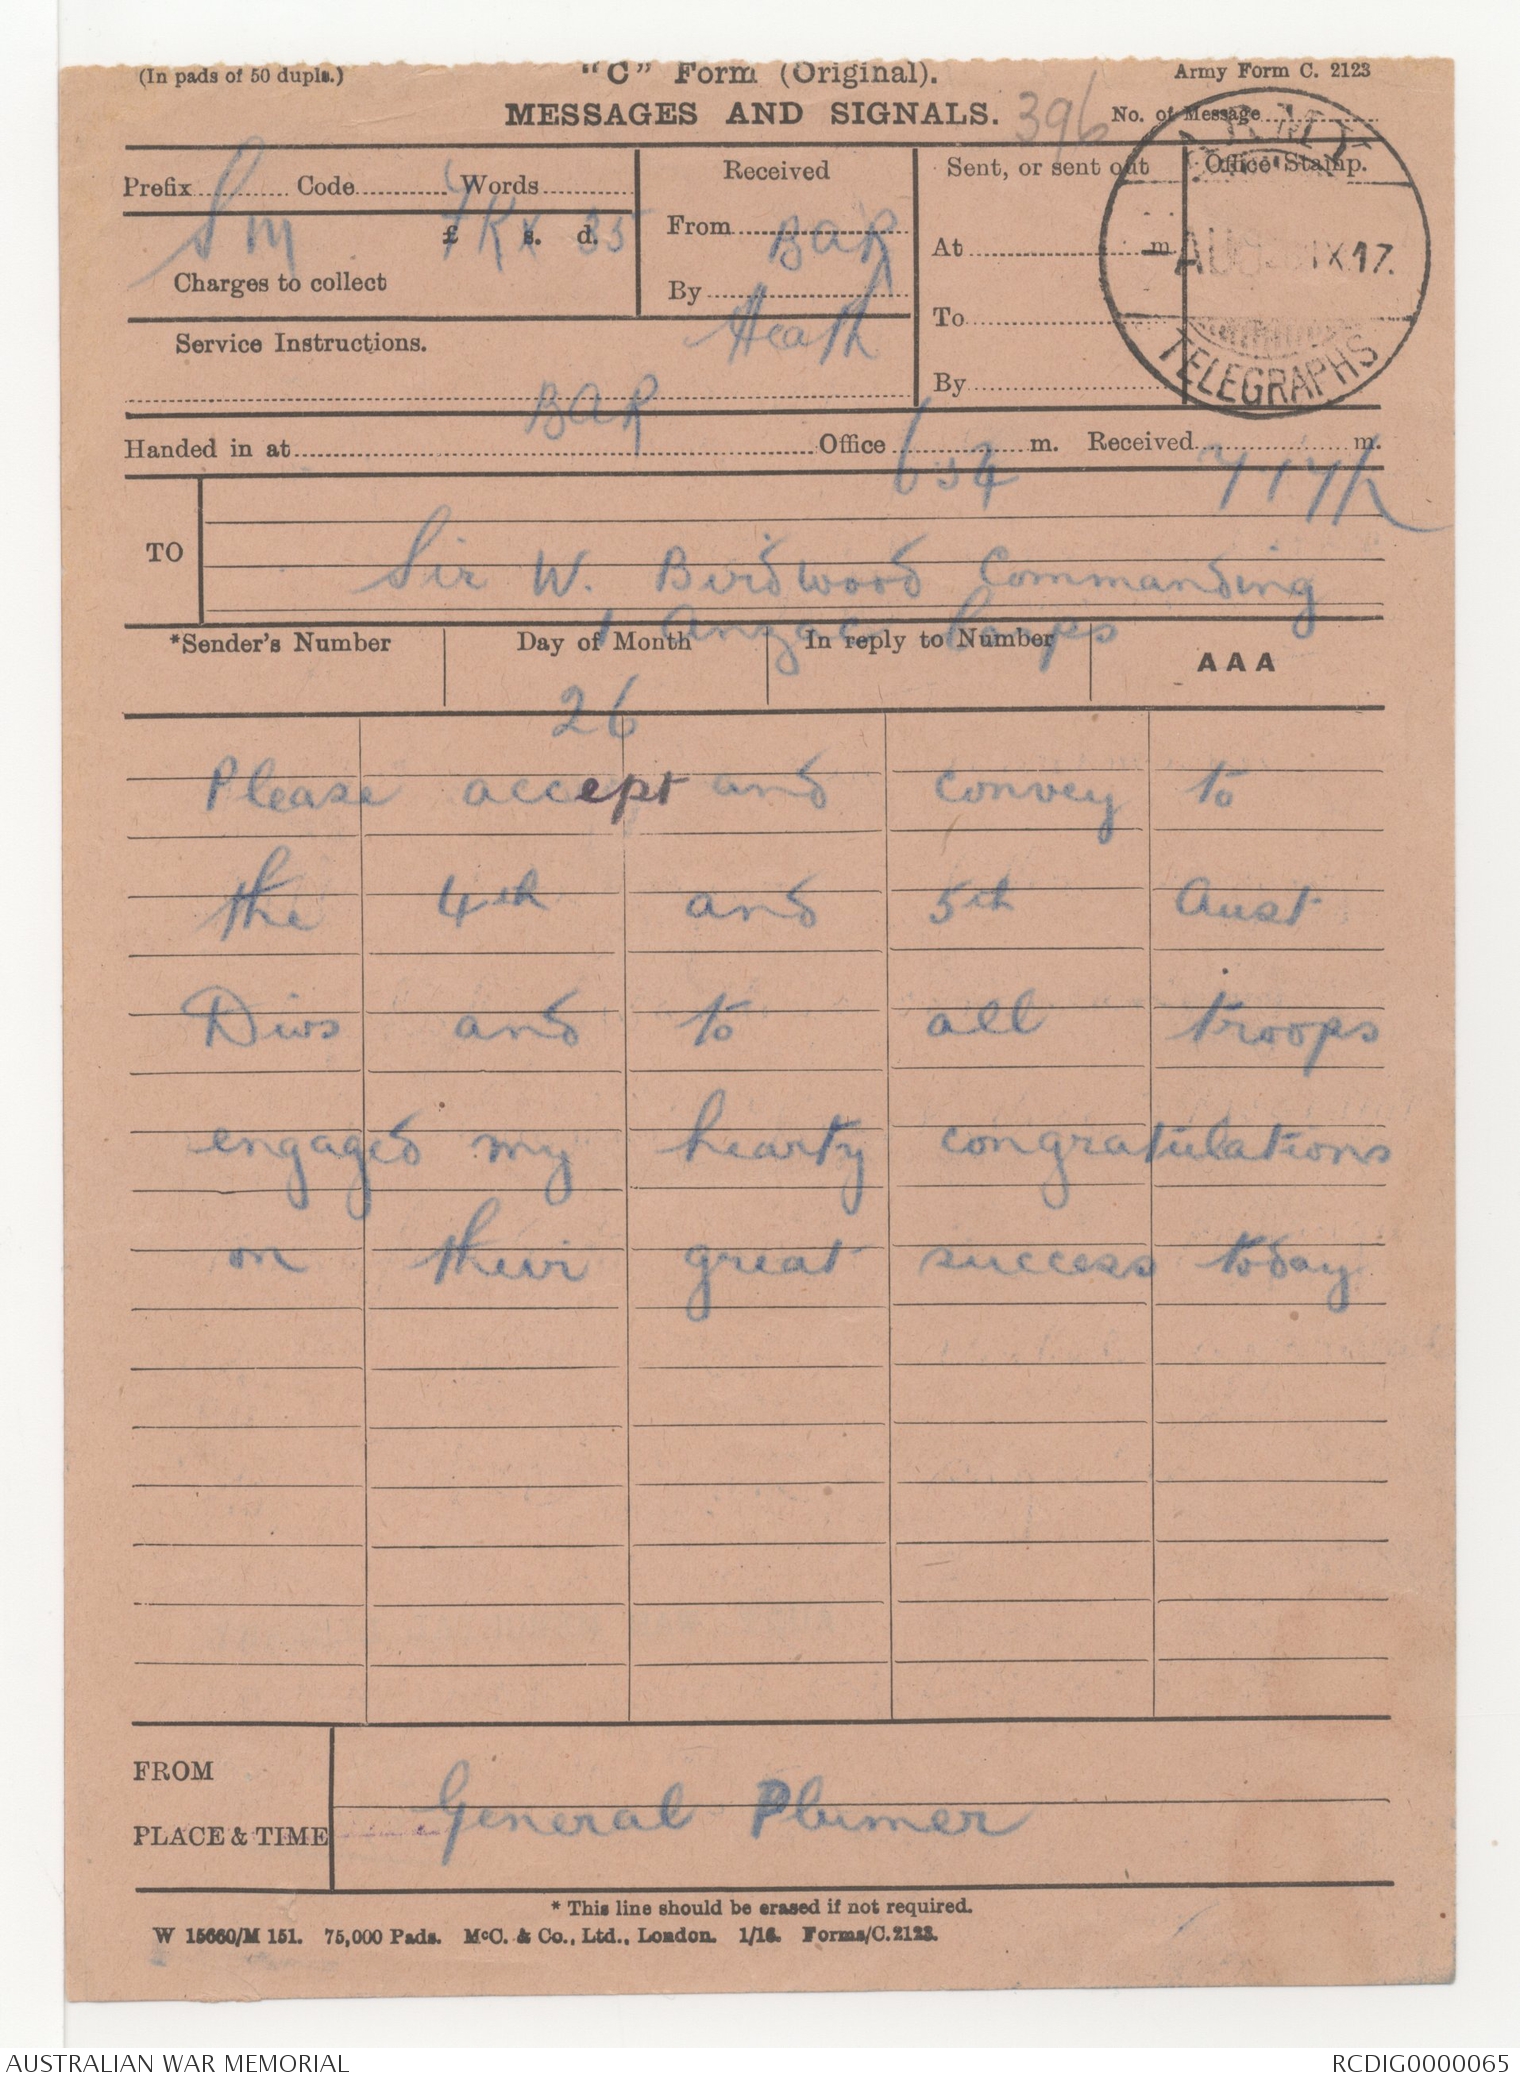 (In pads of 50 dupls.) "C" Form (Original). Army Form C. 2123
MESSAGES AND SIGNALS. 396 No. of Message
Prefix Sm Code Words 35
£ s. d.
Charges to collect
Received
From BAR
By Heath
Sent, or sent out
At m.
To
By
Office Stamp.
ARMY
IX.17.
TELEGRAPHS
Service Instructions.
BAR
Handed in at Office 6 34 m. Received m.
TO
Sir W. Birdwood Commanding
1 Anzac Corps
*Sender's Number Day of Month In reply to Number AAA
26
Please accept and convey to
the 4th and 5th Aust
Divs and to all troops
engaged my hearty congratulations
on their great success today
FROM
General Plumer
PLACE & TIME
* This line should be erased if not required.
W 15660/M 151. 75,000 Pads. McC. & Co., Ltd., London. 1/16. Forms/C.2123.
AUSTRALIAN WAR MEMORIAL RCDIG0000065